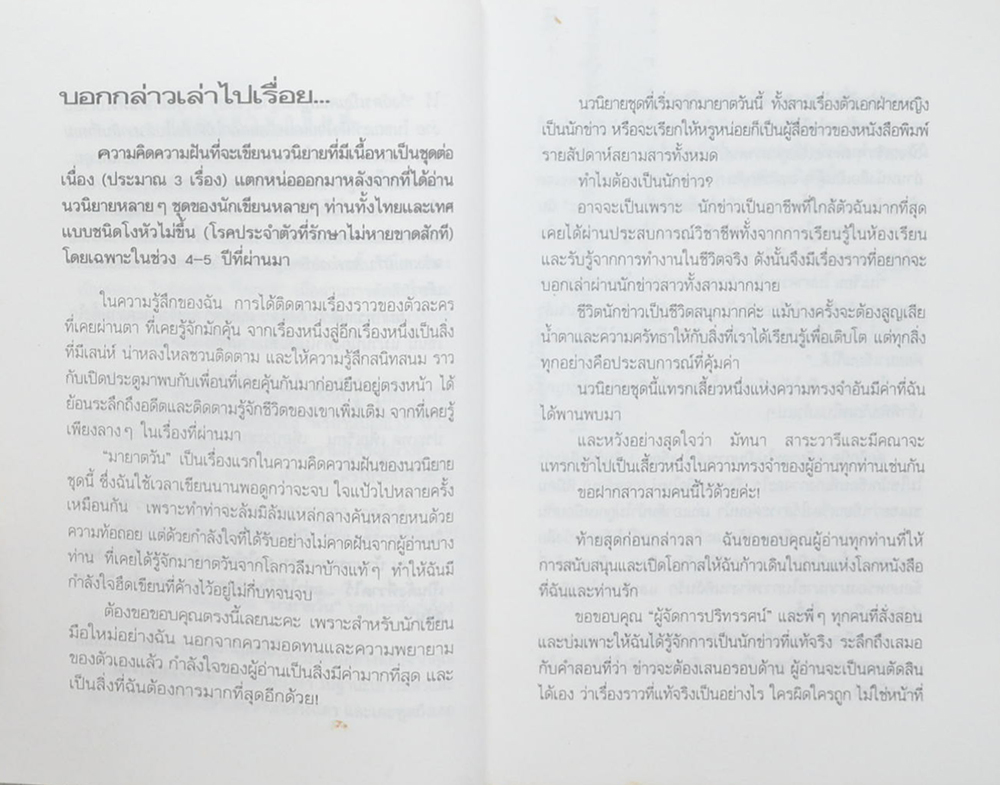 บอกกล่าวเล่าไปเรื่อย...
ความคิดความฝันที่จะเขียนนวนิยายที่มีเนื้อหาเป็นชุดต่อ
เนื่อง (ประมาณ 3 เรื่อง) แตกหน่อออกมาหลังจากที่ได้อ่าน
นวนิยายหลายๆ ชุดของนักเขียนหลายๆ ท่านทั้งไทยและเทศ
แบบชนิดโงหัวไม่ขึ้น (โรคประจำตัวที่รักษาไม่หายขาดสักที)
โดยเฉพาะในช่วง 4-5 ปีที่ผ่านมา
ในความรู้สึกของฉัน การได้ติดตามเรื่องราวของตัวละคร
ที่เคยผ่านตา ที่เคยรู้จักมักคุ้น จากเรื่องหนึ่งสู่อีกเรื่องหนึ่งเป็นสิ่ง
ที่มีเสน่ห์ น่าหลงใหลชวนติดตาม และให้ความรู้สึกสนิทสนม ราว
กับเปิดประตูมาพบกับเพื่อนที่เคยคุ้นกันมาก่อนยืนอยู่ตรงหน้า ได้
ย้อนระลึกถึงอดีตและติดตามรู้จักชีวิตของเขาเพิ่มเติม จากที่เคยรู้
เพียงลางๆ ในเรื่องที่ผ่านมา
“มายาตวัน” เป็นเรื่องแรกในความคิดความฝันของนวนิยาย
ชุดนี้ ซึ่งฉันใช้เวลาเขียนนานพอดูกว่าจะจบ ใจแป้วไปหลายครั้ง
เหมือนกัน เพราะทำท่าจะล้มมิล้มแหล่กลางคันหลายหนด้วย
ความท้อถอย แต่ด้วยกำลังใจที่ได้รับอย่างไม่คาดฝันจากผู้อ่านบาง
ท่าน ที่เคยได้รู้จักมายาตวันจากโลกวลีมาบ้างแท้ๆ ทำให้ฉันมี
กำลังใจฮึดเขียนที่ค้างไว้อยู่ไม่กี่บทจนจบ
ต้องขอขอบคุณตรงนี้เลยนะคะ เพราะสำหรับนักเขียน
มือใหม่อย่างฉัน นอกจากความอดทนและความพยายาม
ของตัวเองแล้ว กำลังใจของผู้อ่านเป็นสิ่งมีค่ามากที่สุด และ
เป็นสิ่งที่ฉันต้องการมากที่สุดอีกด้วย!
นวนิยายชุดที่เริ่มจากมายาตวันนี้ ทั้งสามเรื่องตัวเอกฝ่ายหญิง
เป็นนักข่าว หรือจะเรียกให้หรูหน่อยก็เป็นผู้สื่อข่าวของหนังสือพิมพ์
รายสัปดาห์สยามสารทั้งหมด
ทำไมต้องเป็นนักข่าว?
อาจจะเป็นเพราะ นักข่าวเป็นอาชีพที่ใกล้ตัวฉันมากที่สุด
เคยได้ผ่านประสบการณ์วิชาชีพทั้งจากการเรียนรู้ในห้องเรียน
และรับรู้จากการทำงานในชีวิตจริง ดังนั้นจึงมีเรื่องราวที่อยากจะ
บอกเล่าผ่านนักข่าวสาวทั้งสามมากมาย
ชีวิตนักข่าวเป็นชีวิตสนุกมากค่ะ แม้บางครั้งจะต้องสูญเสีย
น้ำตาและความศรัทธาให้กับสิ่งที่เราได้เรียนรู้เพื่อเติบโต แต่ทุกสิ่ง
ทุกอย่างคือประสบการณ์ที่คุ้มค่า
นวนิยายชุดนี้แทรกเสี้ยวหนึ่งแห่งความทรงจำอันมีค่าที่ฉัน
ได้พานพบมา
และหวังอย่างสุดใจว่า มัทนา สาระวารีและมีคณาจะ
แทรกเข้าไปเป็นเสี้ยวหนึ่งในความทรงจำของผู้อ่านทุกท่านเช่นกัน
ขอฝากสาวสามคนนี้ไว้ด้วยค่ะ!
ท้ายสุดก่อนกล่าวลา ฉันขอขอบคุณผู้อ่านทุกท่านที่ให้
การสนับสนุนและเปิดโอกาสให้ฉันก้าวเดินในถนนแห่งโลกหนังสือ
ที่ฉันและท่านรัก
ขอขอบคุณ “ผู้จัดการปริทรรศน์” และพี่ๆ ทุกคนที่สั่งสอน
และบ่มเพาะให้ฉันได้รู้จักการเป็นนักข่าวที่แท้จริง ระลึกถึงเสมอ
กับคำสอนที่ว่า ข่าวจะต้องเสนอรอบด้าน ผู้อ่านจะเป็นคนตัดสิน
ได้เอง ว่าเรื่องราวที่แท้จริงเป็นอย่างไร ใครผิดใครถูก ไม่ใช่หน้าที่